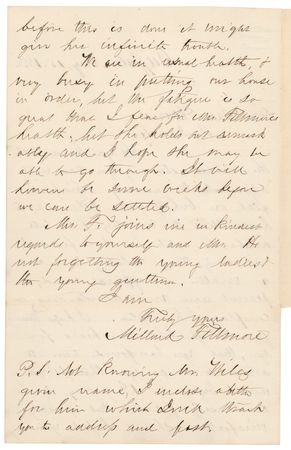 before this is done it might
give her infinite trouble.
We are in usual health, &
very busy in putting our house
in order, but the fatigue is so
great that I fear for Mrs. Fillmore's
health, but she holds out remark
ably and I hope she may be
able to go through. It will
however be some weeks before
we can be settled.
Mrs. F. joins me in kindest
regards to yourself and Mrs.
not forgetting the young ladies &
the young gentleman.
I am
Truly yours
Millard Fillmore
P.S. Not knowing Mr.
given name, I enclose a letter
for him which I will thank
you to address and post.